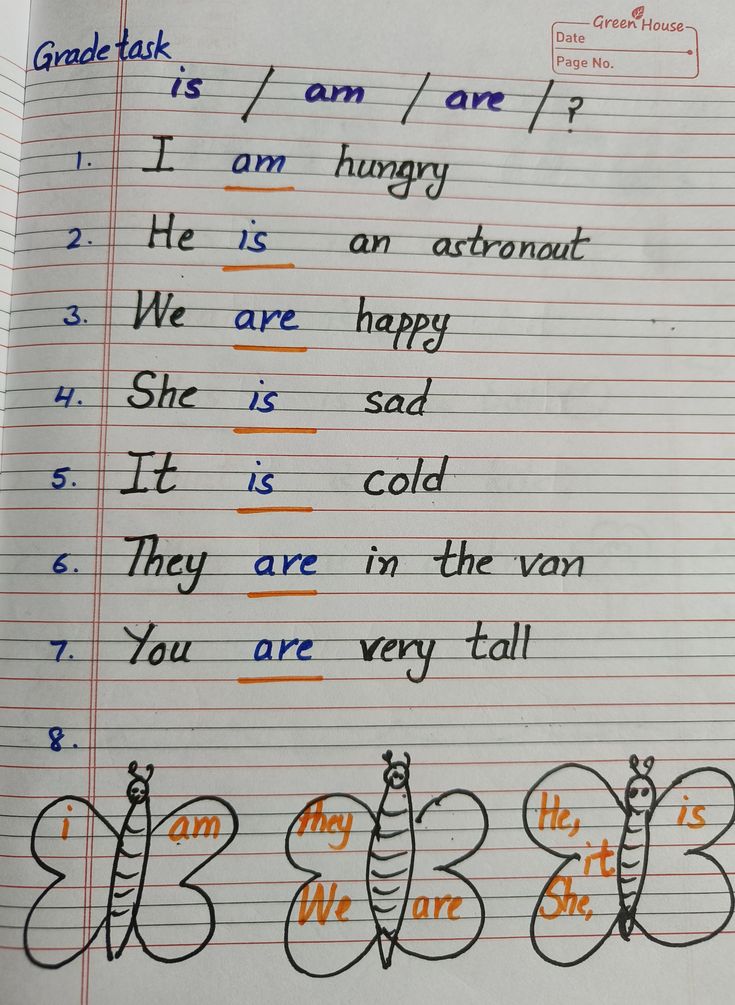 Green House
Date
Page No.
Grade task
is / am / are / ?
1. I am hungry
2. He is an astronout
3. We are happy
4. She is sad
5. It is cold
6. They are in the van
7. You are very tall
8.
i am
they
We are
He, is
it
She,